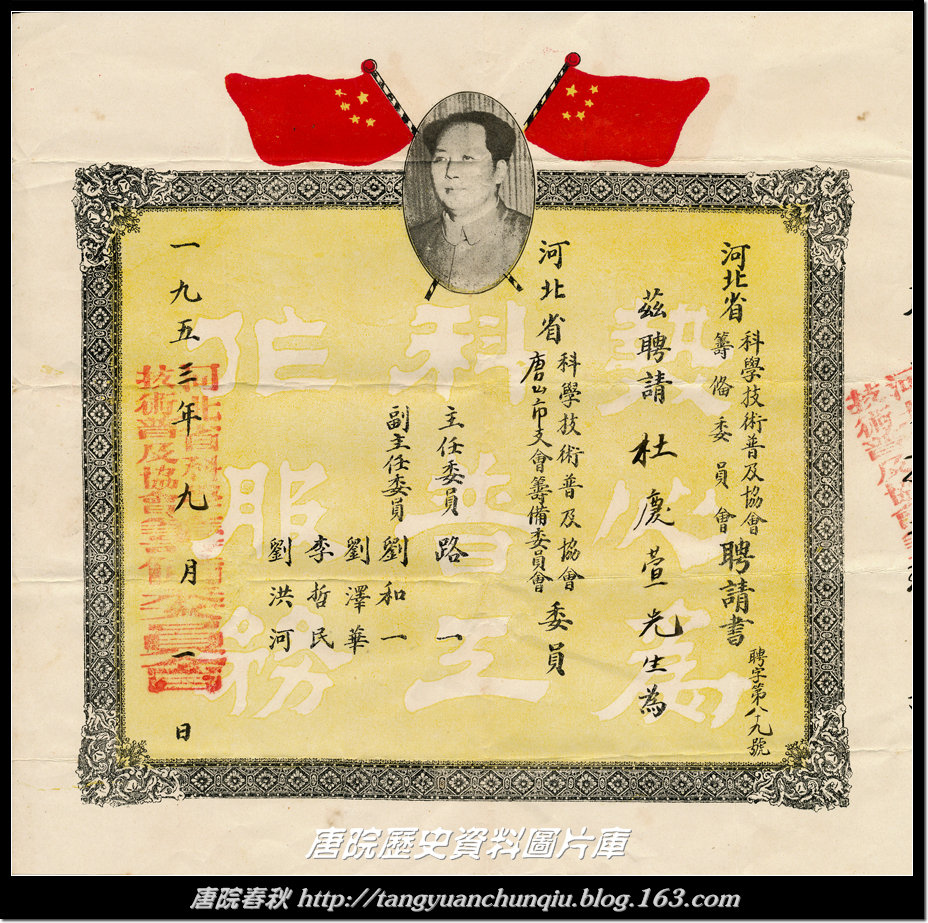 河北省科學技術普及協會籌備委員會聘請書
聘字第八九號
茲聘請杜慶萱先生為
河北省科學技術普及協會唐山市支會籌備委員會委員
主任委員 路一
副主任委員 劉和一
劉澤華
李哲民
劉洪河
一九五三年九月一日
熱心為
科普工
作服務
河北省科學技術普及協會籌備委員會
唐院歷史資料圖片庫
唐院春秋 http://tangyuanchunqiu.blog.163.com